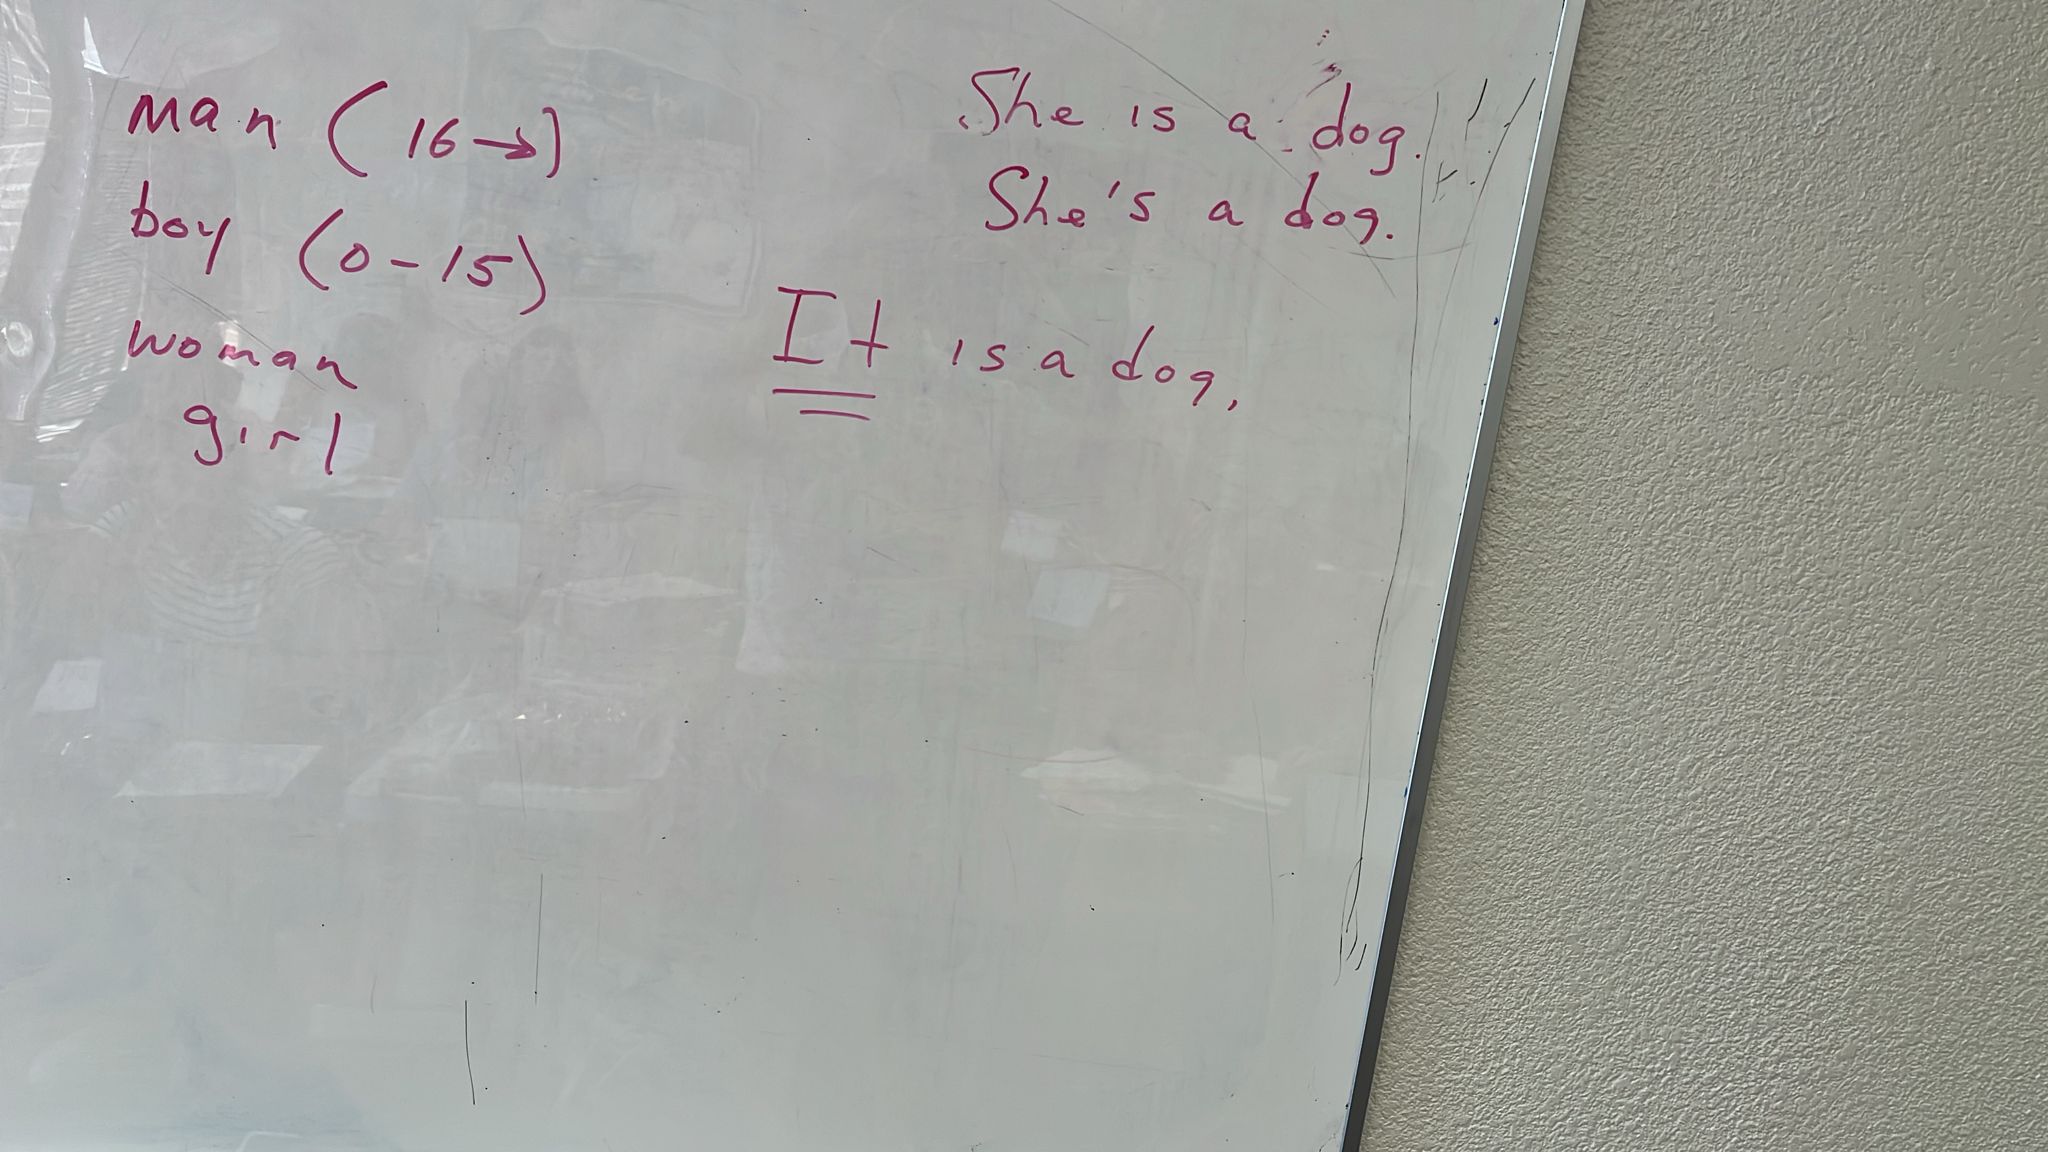 man (16→)
boy (0-15)
woman
girl
She is a dog.
She's a dog.
It is a dog.